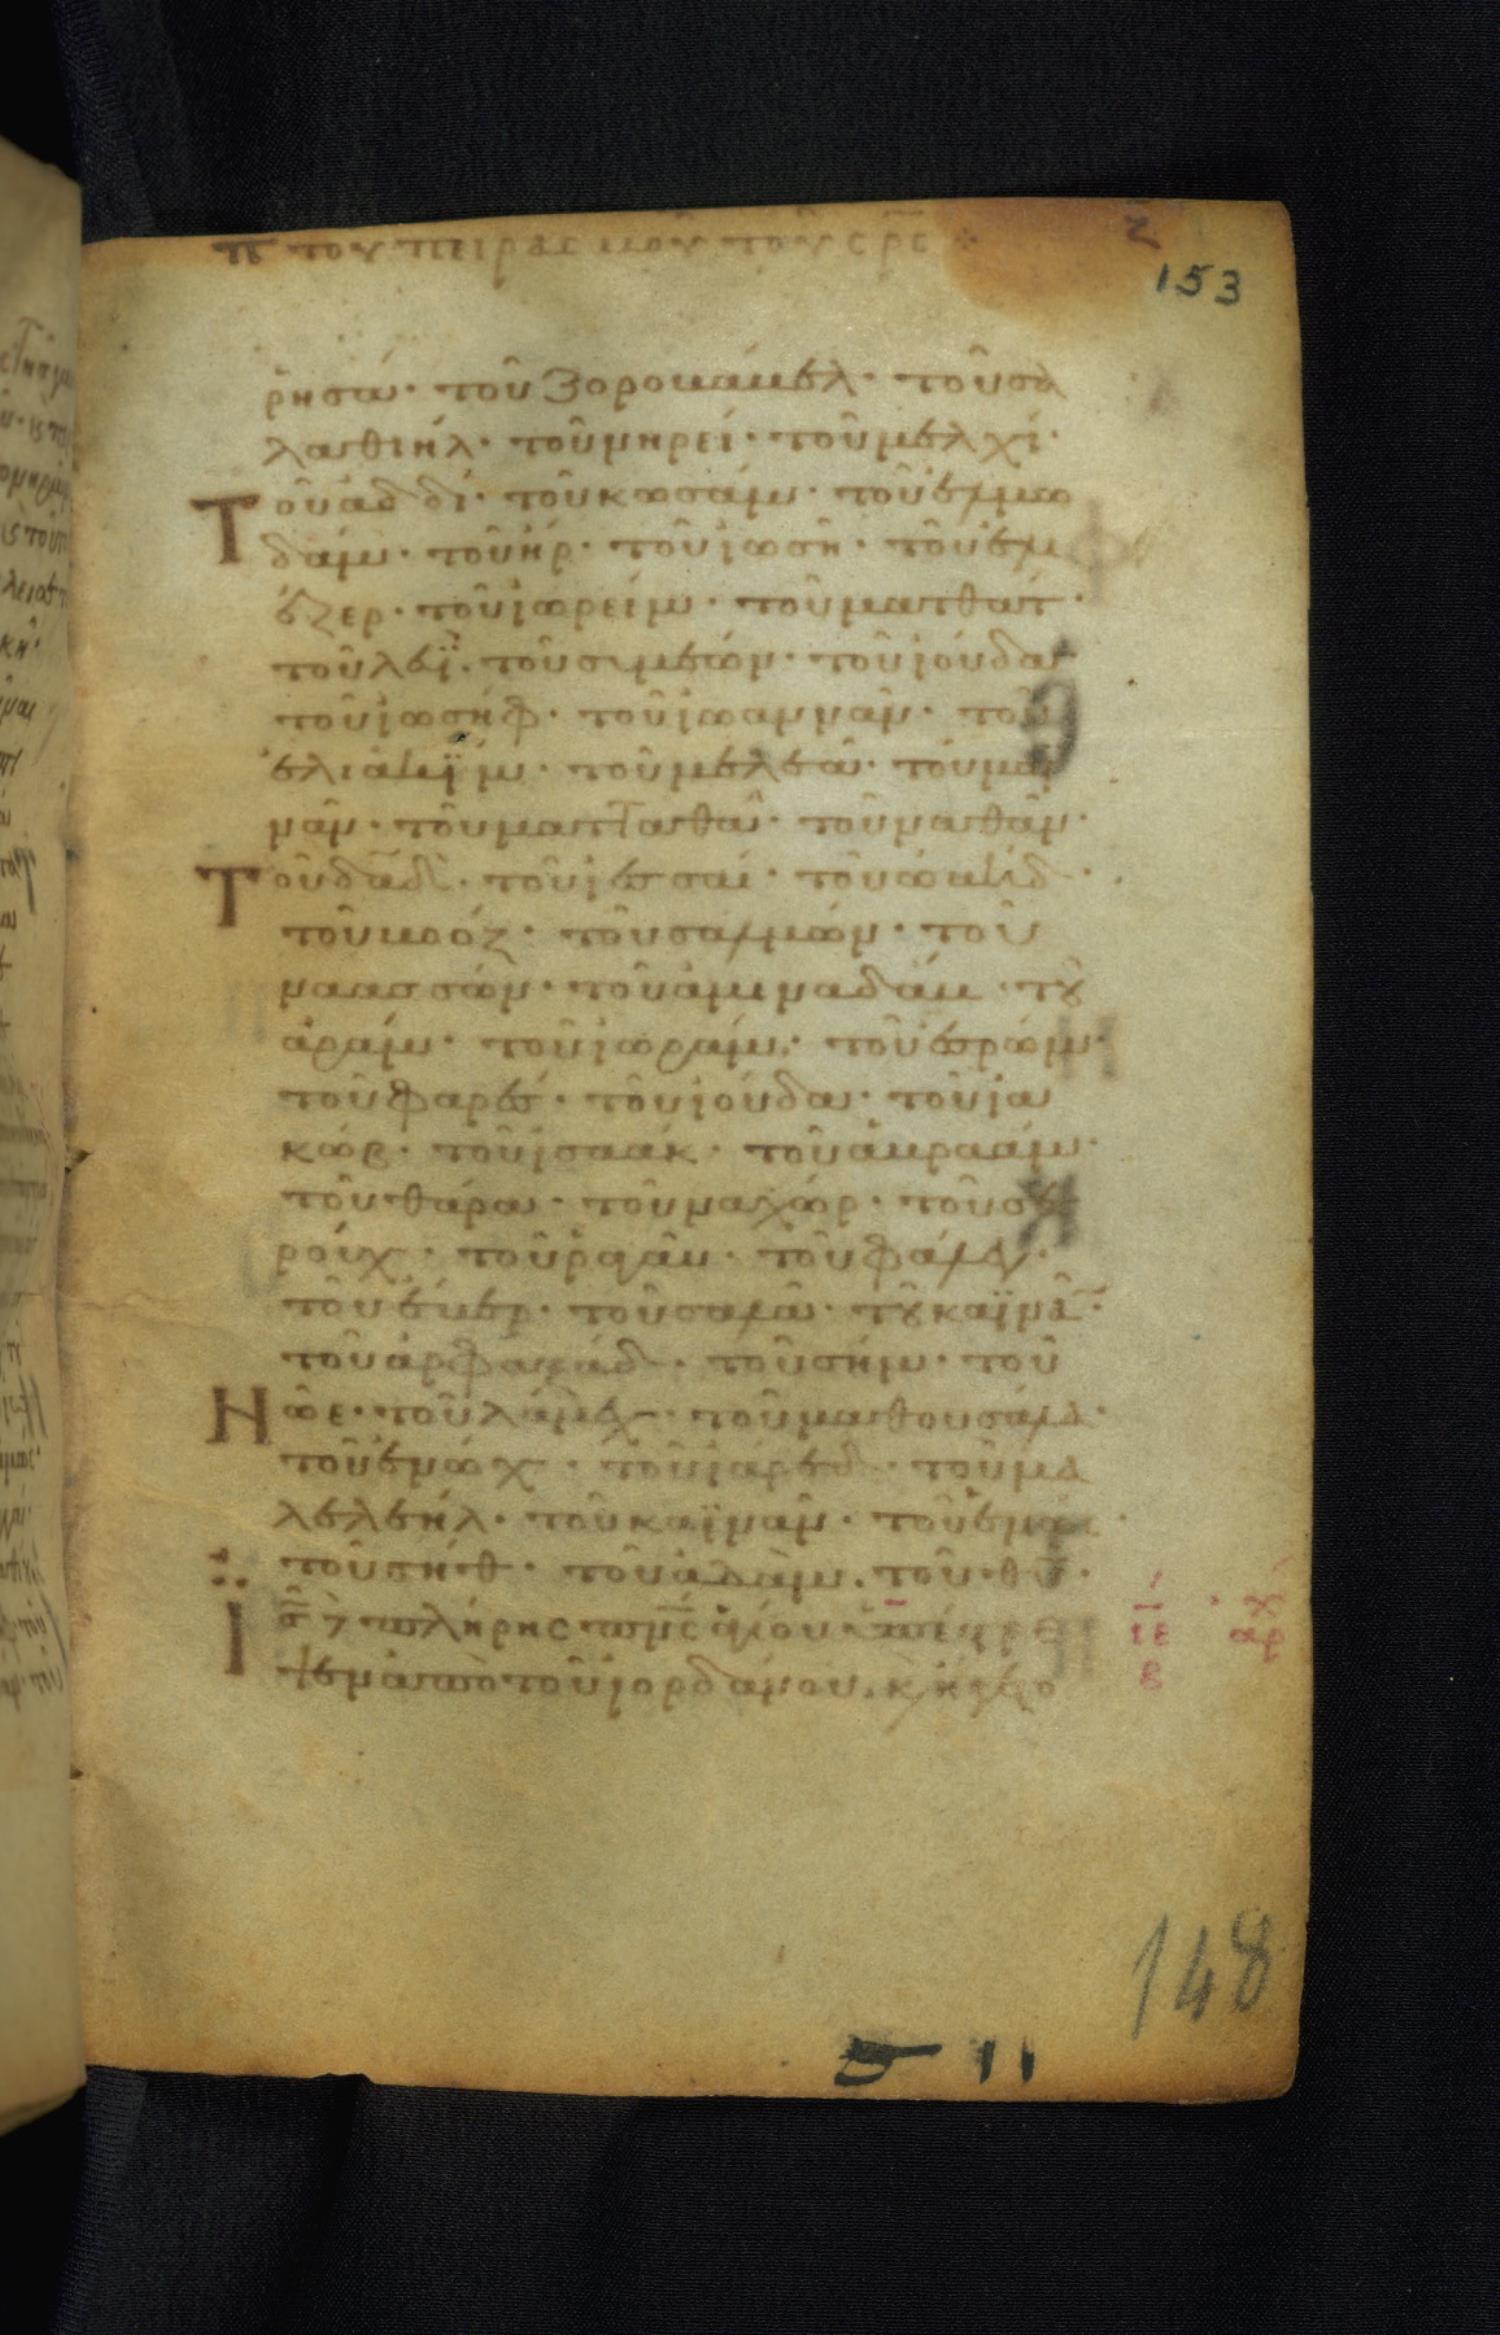 πε του πειρασμου του σρς
153
ρησά· τοῦ Ζοροβάβελ· τοῦ σα
λαθιήλ· τοῦ νηρεί· τοῦ μελχί·
Τοῦ ἀδδί· τοῦ κωσάμ· τοῦ ἐλμω
δάμ· τοῦ ἤρ· τοῦ ἰωσῆ· τοῦ ἐλι
έζερ· τοῦ ἰωρείμ· τοῦ ματθάτ·
τοῦ λευΐ· τοῦ συμεών· τοῦ ἰούδα
τοῦ ἰωσήφ· τοῦ ἰωαννάν· τοῦ
ἐλιακίμ· τοῦ μελεᾶ· τοῦ μαϊ
νάν· τοῦ ματταθᾶ· τοῦ ναθάν·
Τοῦ δαδ· τοῦ ἰεσσαί· τοῦ ὠβήδ·
τοῦ βοόζ· τοῦ σαλμών· τοῦ
ναασσών· τοῦ ἀμιναδάβ· τȣ
ἀράμ· τοῦ ἰωράμ· τοῦ ἐσρώμ·
τοῦ φαρές· τοῦ ἰούδα· τοῦ ἰα
κώβ· τοῦ ἰσαάκ· τοῦ ἀβραάμ·
τοῦ θάρα· τοῦ ναχώρ· τοῦ σε
ρούχ· τοῦ ῥαγάβ· τοῦ φάλεγ·
τοῦ ἔβερ· τοῦ σαλᾶ· τȣ καϊνά·
τοῦ ἀρφαξάδ· τοῦ σήμ· τοῦ
Νῶε· τοῦ λάμεχ· τοῦ μαθουσάλα·
τοῦ ἐνώχ· τοῦ ἰάρεδ· τοῦ μα
λελεήλ· τοῦ καϊνάν· τοῦ ἐνώς
τοῦ σήθ· τοῦ ἀδάμ· τοῦ θυ·
Ις πλήρης πνς ἁγίου ὑπέστρε
ψεν ἀπὸ τοῦ ἰορδάνου· κ ἤγετο
148